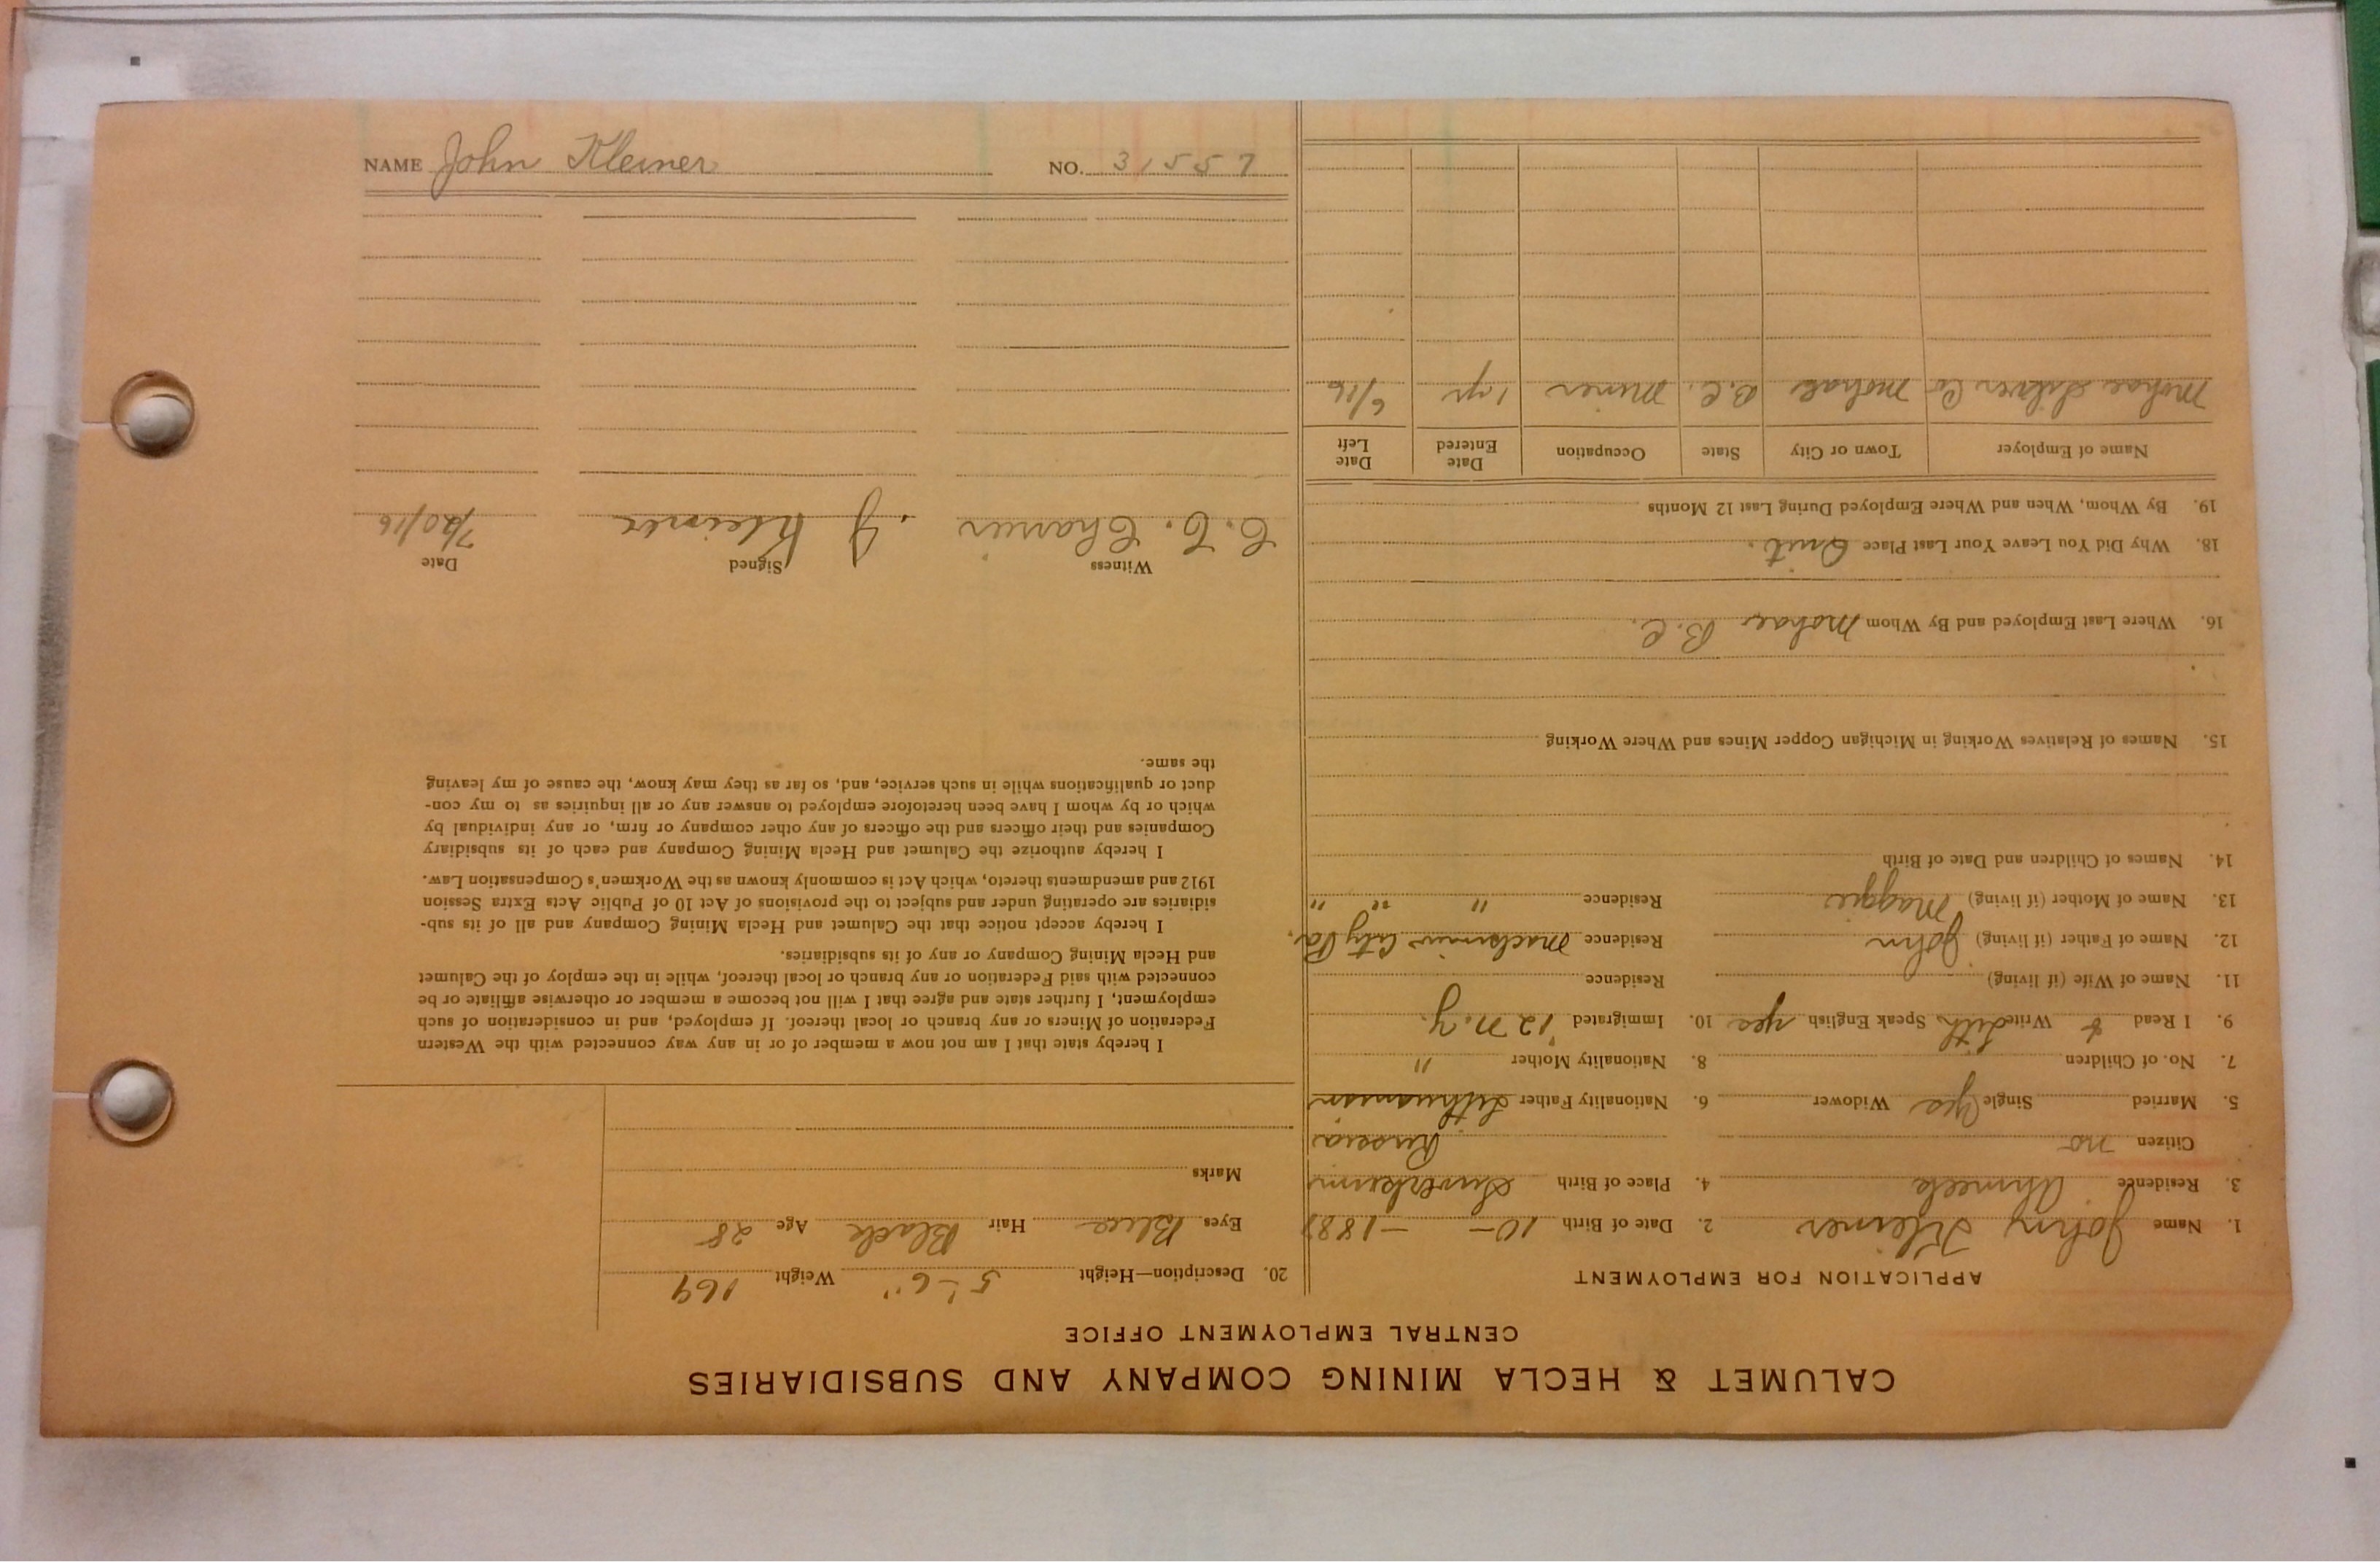 CALUMET & HECLA MINING COMPANY AND SUBSIDIARIES
CENTRAL EMPLOYMENT OFFICE
APPLICATION FOR EMPLOYMENT
1. Name John Kleiner 2. Date of Birth 10 — — 1887
3. Residence Ahmeek 4. Place of Birth
Citizen no Russia
5. Married Single Yes Widower 6. Nationality Father Lithuanian
7. No. of Children 8. Nationality Mother "
9. I Read & Write Lith Speak English yes 10. Immigrated '12 N.Y.
11. Name of Wife (if living) Residence
12. Name of Father (if living) John Residence City Pa.
13. Name of Mother (if living) Maggie Residence " " "
14. Names of Children and Date of Birth
15. Names of Relatives Working in Michigan Copper Mines and Where Working
16. Where Last Employed and By Whom B.C.
18. Why Did You Leave Your Last Place Quit.
19. By Whom, When and Where Employed During Last 12 Months
Name of Employer Town or City State Occupation Date Entered Date Left
Silver Co B.C. Miner 1 yr 6/16
20. Description—Height 5'-6" Weight 169
Eyes Blue Hair Black Age 28
Marks
I hereby state that I am not now a member of or in any way connected with the Western
Federation of Miners or any branch or local thereof. If employed, and in consideration of such
employment, I further state and agree that I will not become a member or otherwise affiliate or be
connected with said Federation or any branch or local thereof, while in the employ of the Calumet
and Hecla Mining Company or any of its subsidiaries.
I hereby accept notice that the Calumet and Hecla Mining Company and all of its sub-
sidiaries are operating under and subject to the provisions of Act 10 of Public Acts Extra Session
1912 and amendments thereto, which Act is commonly known as the Workmen's Compensation Law.
I hereby authorize the Calumet and Hecla Mining Company and each of its subsidiary
Companies and their officers and the officers of any other company or firm, or any individual by
which or by whom I have been heretofore employed to answer any or all inquiries as to my con-
duct or qualifications while in such service, and, so far as they may know, the cause of my leaving
the same.
Witness Signed Date
C. C. J Kleiner 7/20/16
NAME John Kleiner NO. 31557